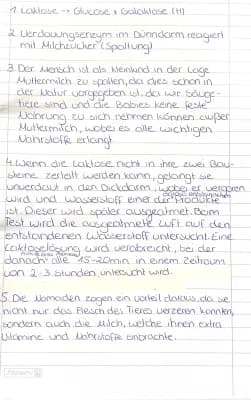 1. Laktose → Glucose + Galaktose (H)
2. Verdauungsenzym im Dünndarm reagiert
mit Milchzucker (Spaltung)
3. Der Mensch ist als Kleinkind in der Lage
Muttermilch zu spalten, da dies schon in
der Natur vorgegeben ist, da wir Säuge-
tiere sind und die Babies keine feste
Nahrung zu sich nehmen können außer
Muttermilch, wobei es alle wichtigen
Nährstoffe erlangt
4. Wenn die Laktose nicht in ihre zwei Bau-
steine zerteilt werden kann, gelangt sie
unverdaut in den Dickdarm, wobei es vergoren
wird und Wasserstoff einer der Produkte
ist. Dieser wird später ausgeatmet. Beim
Test wird die ausgeatmete Luft auf den
entstandenen Wasserstoff untersucht. Eine
Laktoselösung wird verabreicht, bei der
danach alle 15-20min in einem Zeitraum
von 2-3 Stunden untersucht wird.
5. Die Nomaden zogen ein Vorteil daraus, da sie
nicht nur das Fleisch des Tieres verzeren konnten,
sondern auch die Milch, welche ihnen extra
Vitamine und Nährstoffe einbrachte.